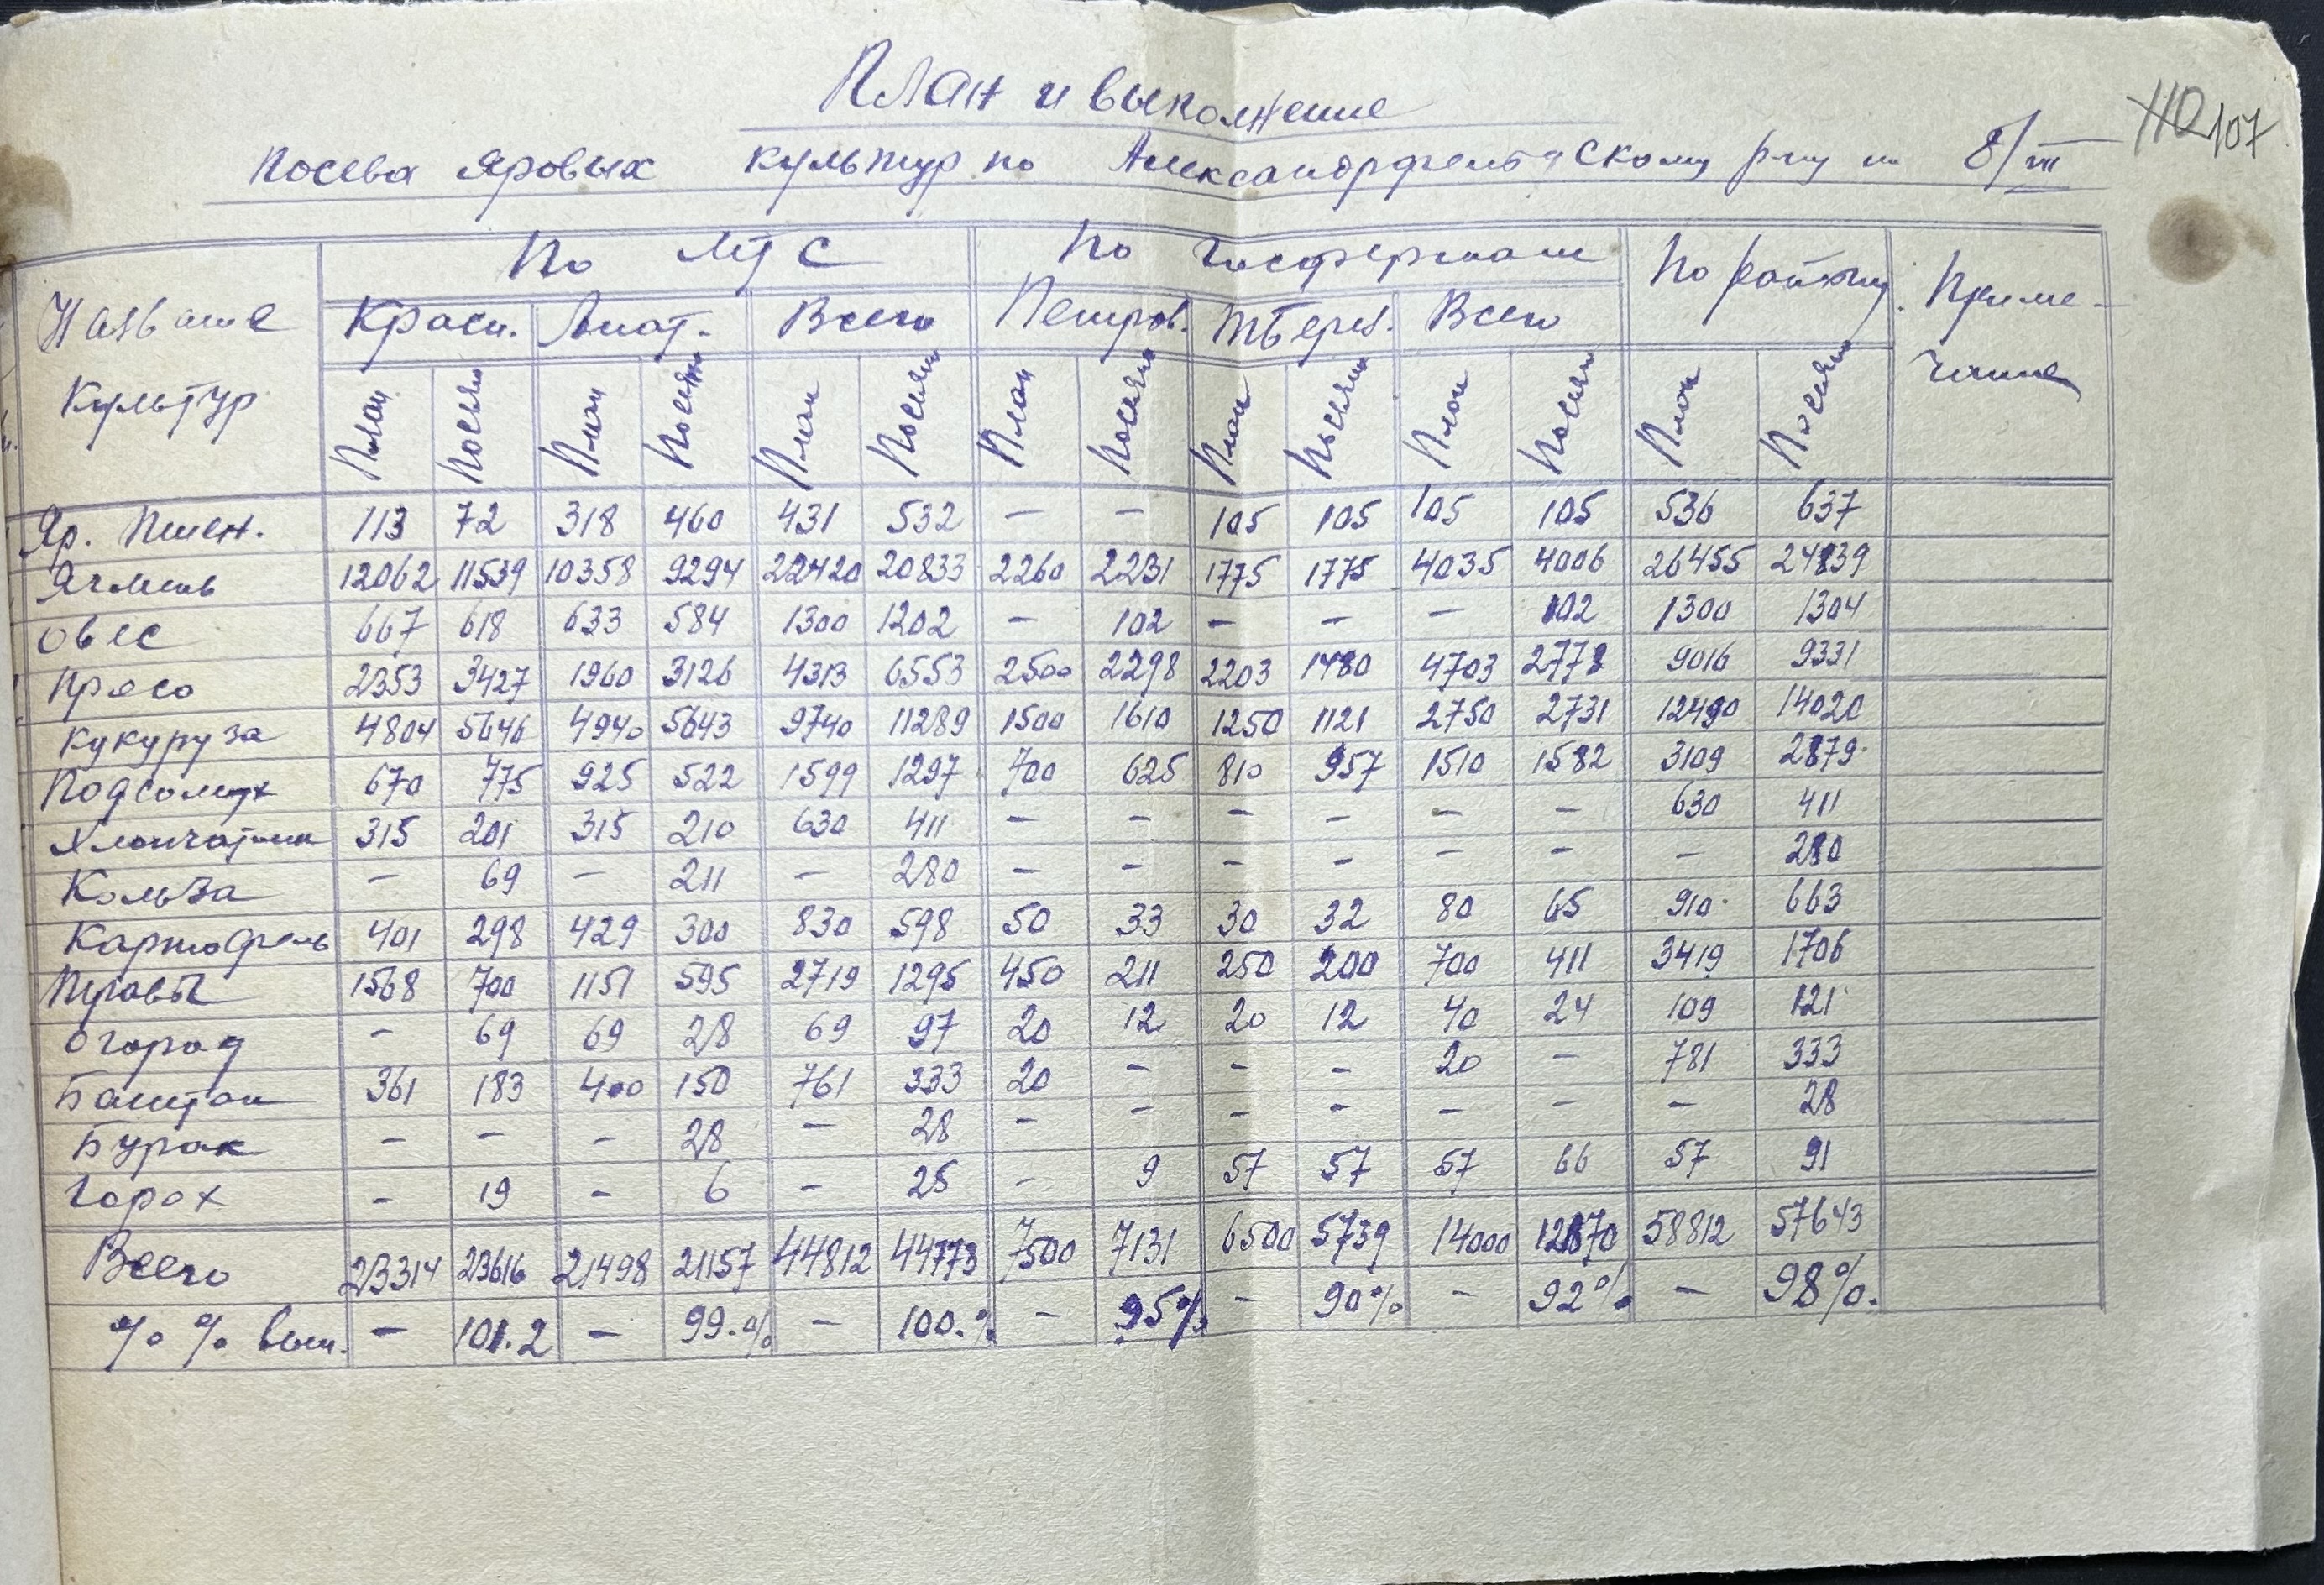 110 107
План и выполнение
посева яровых культур по Александрфельдскому р-ну на 8/VII
Название культур По МТС По Госфермам По району Приме-чание
Красн. Анат. Всего Петров. Тверск. Всего
План Посеяно План Посеяно План Посеяно План Посеяно План Посеяно План Посеяно План Посеяно
Яр. Пшен. 113 72 318 460 431 532 — — 105 105 105 105 536 637
Ячмень 12062 11539 10358 9294 22420 20833 2260 2231 1775 1775 4035 4006 26455 24839
Овес 667 618 633 584 1300 1202 — 102 — — — 102 1300 1304
Просо 2353 3427 1960 3126 4313 6553 2500 2298 2203 1480 4703 2778 9016 9331
Кукуруза 4804 5646 4940 5643 9740 11289 1500 1610 1250 1121 2750 2731 12490 14020
Подсолнух 670 775 925 522 1599 1297 700 625 810 957 1510 1582 3109 2879
Хлопчатник 315 201 315 210 630 411 — — — — — — 630 411
Кольза — 69 — 211 — 280 — — — — — — — 280
Картофель 401 298 429 300 830 598 50 33 30 32 80 65 910 663
Травы 1568 700 1151 595 2719 1295 450 211 250 200 700 411 3419 1706
Огород — 69 69 28 69 97 20 12 20 12 40 24 109 121
Баштан 361 183 400 150 761 333 20 — — — 20 — 781 333
Бурак — — — 28 — 28 — — — — — — — 28
Горох — 19 — 6 — 25 — 9 57 57 57 66 57 91
Всего 23314 23616 21498 21157 44812 44773 7500 7131 6500 5739 14000 12870 58812 57643
% % вып. — 101.2 — 99.% — 100.% — 95% — 90% — 92% — 98%.